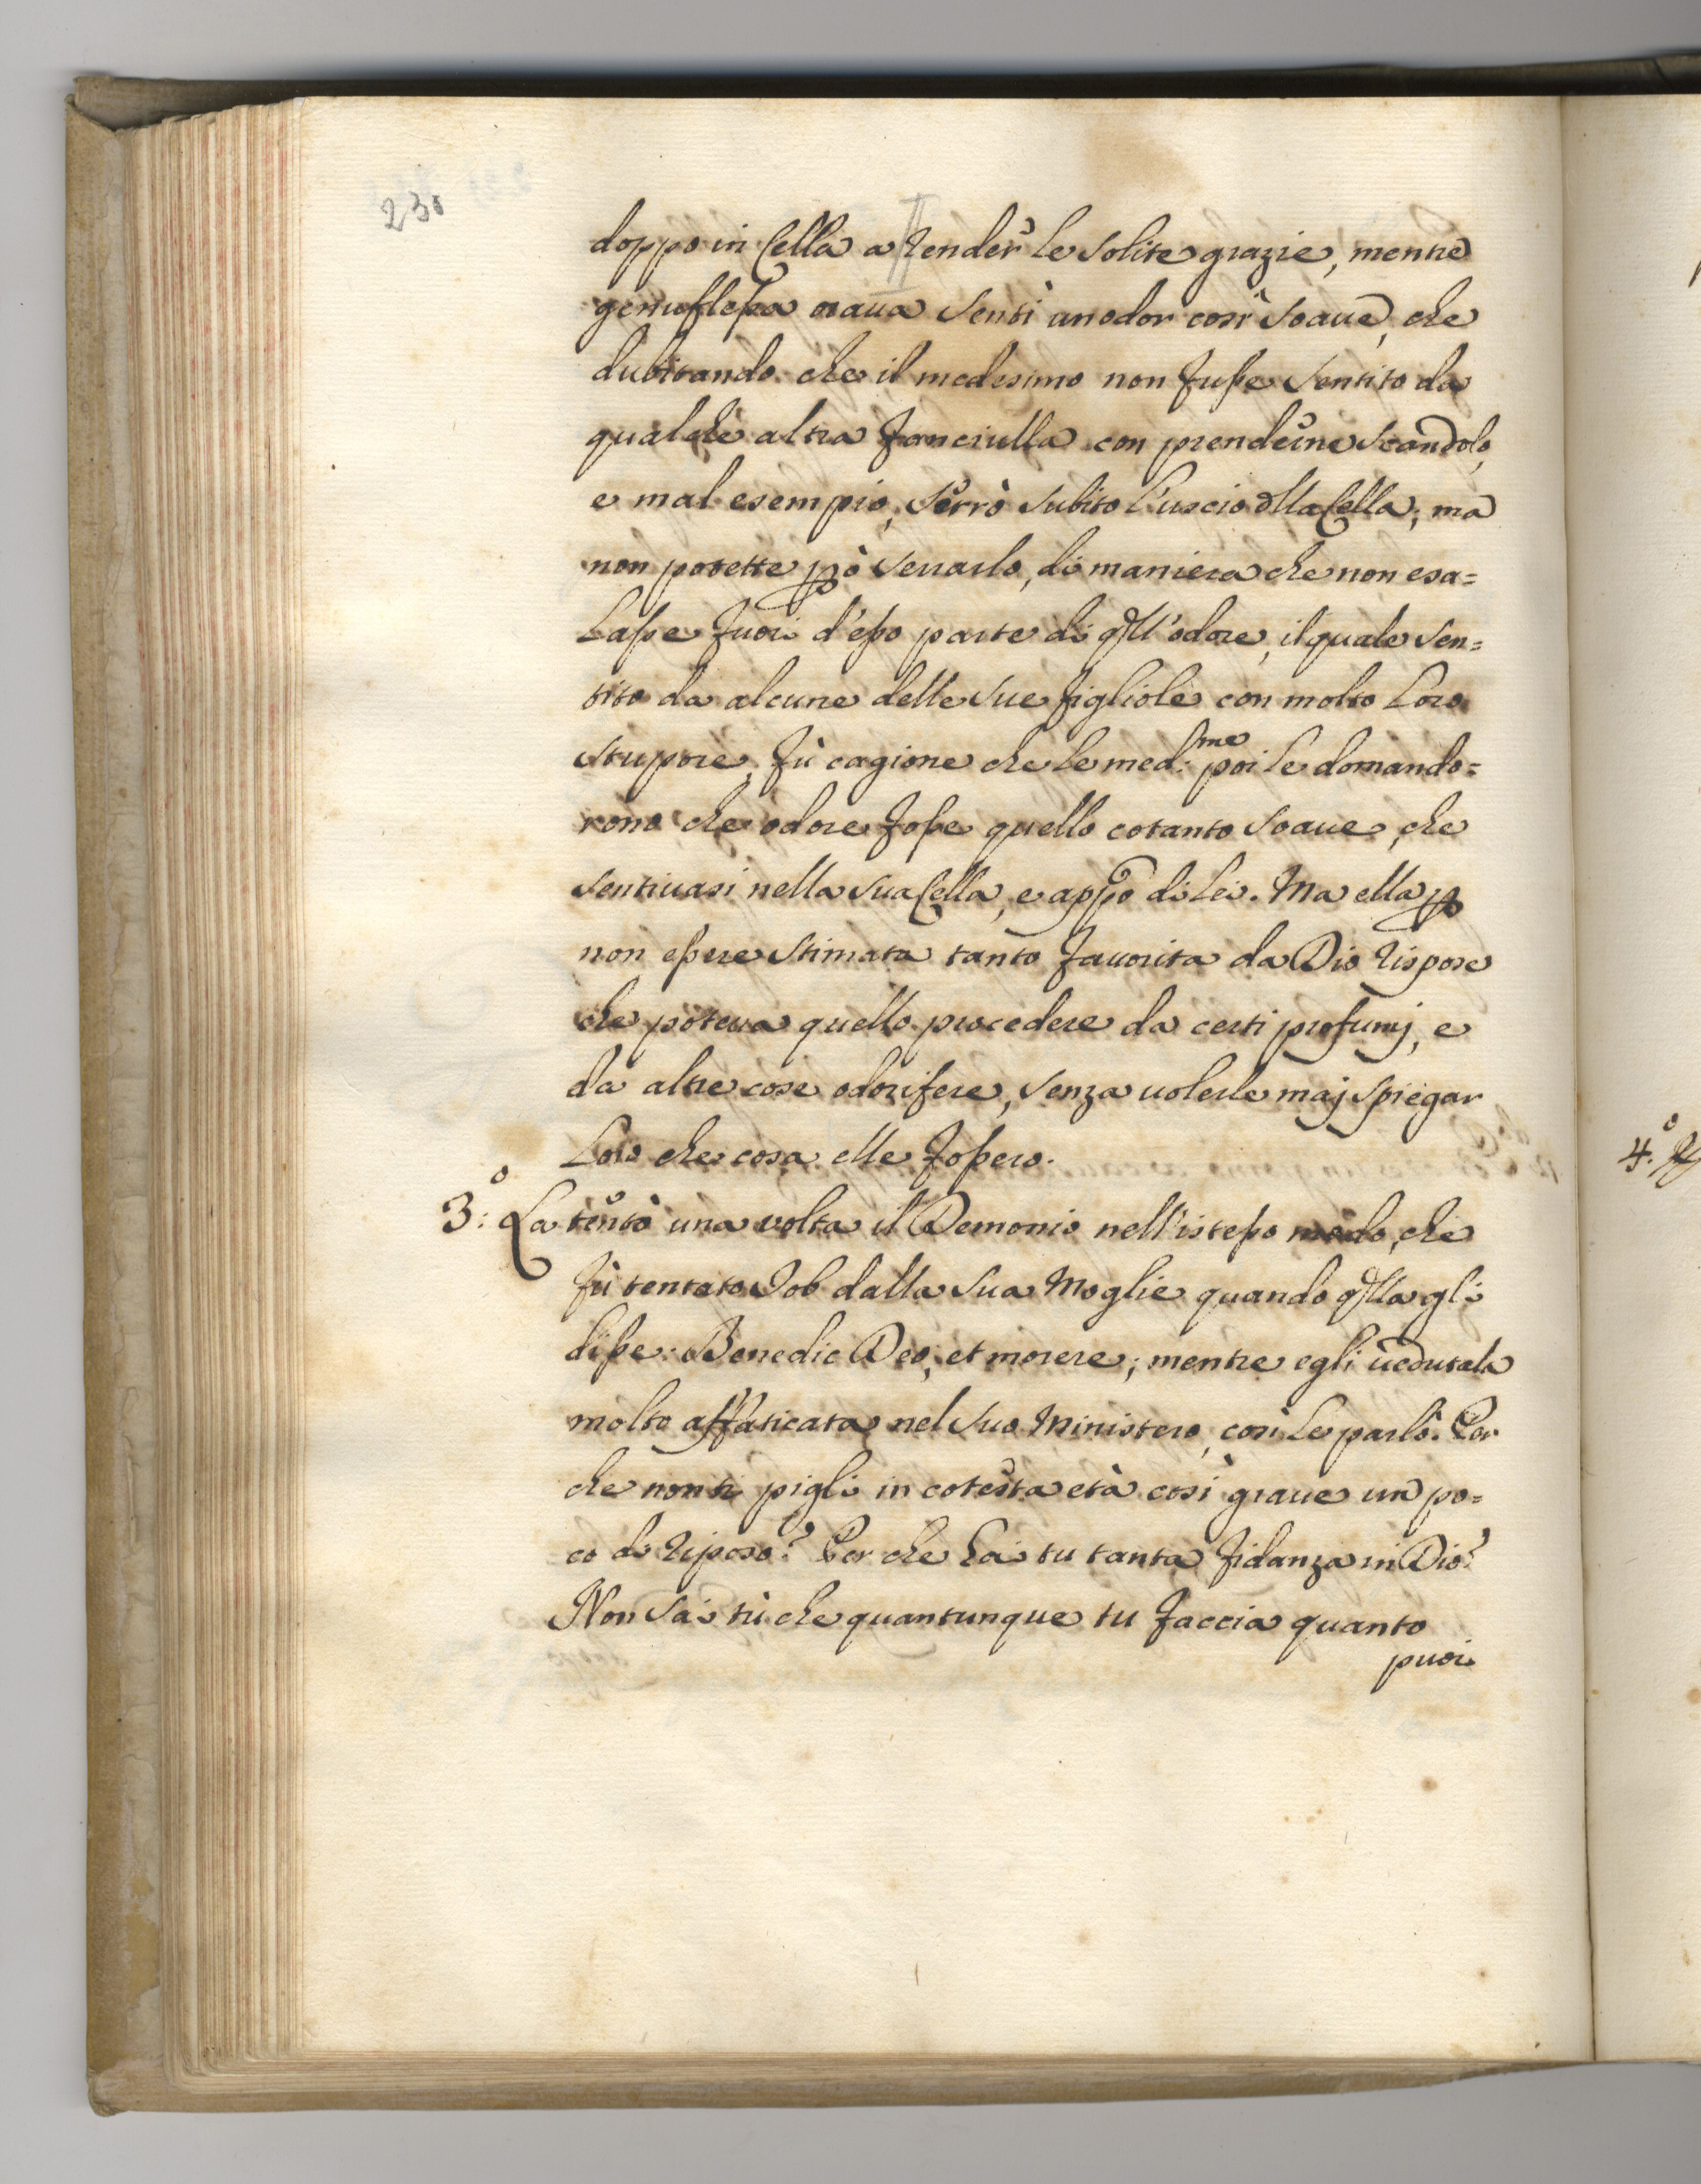 230
doppo in Cella a render le solite grazie, mentre
genuflessa oraua sentì un odor così soaue, che
dubitando che il medesimo non fusse sentito da
qualche altra fanciulla con prenderne scandolo,
e mal esempio, serrò subito l'uscio dlla Cella; ma
non potette però serrarlo, di maniera che non esa=
lasse fuori d'esso parte di qll'odore, il quale sen=
tito da alcune delle sue figliole con molto loro
stupore, fù cagione che le med:me poi le domando=
rono che odore fosse quello cotanto soaue, che
sentiuasi nella sua Cella, e appo di lei. Ma ella p
non essere stimata tanto fauorita da Dio rispose
che poteua quello procedere da certi profumj, e
da altre cose odorifere, senza uolerle maj spiegar
loro che cosa elle fossero.
3:o La tentò una volta il Demonio nell'istesso modo, che
fù tentato Job dalla sua Moglie quando qlla gli
disse: Benedic Deo, et morere; mentre egli uedutala
molto affaticata nel suo Ministero, così le parlò. Per
che non ti pigli in cotesta età così graue un po=
co di riposo? Per che hai tu tanta fidanza in Dio?
Non sai tù che quantunque tu faccia quanto
puoi
4.o